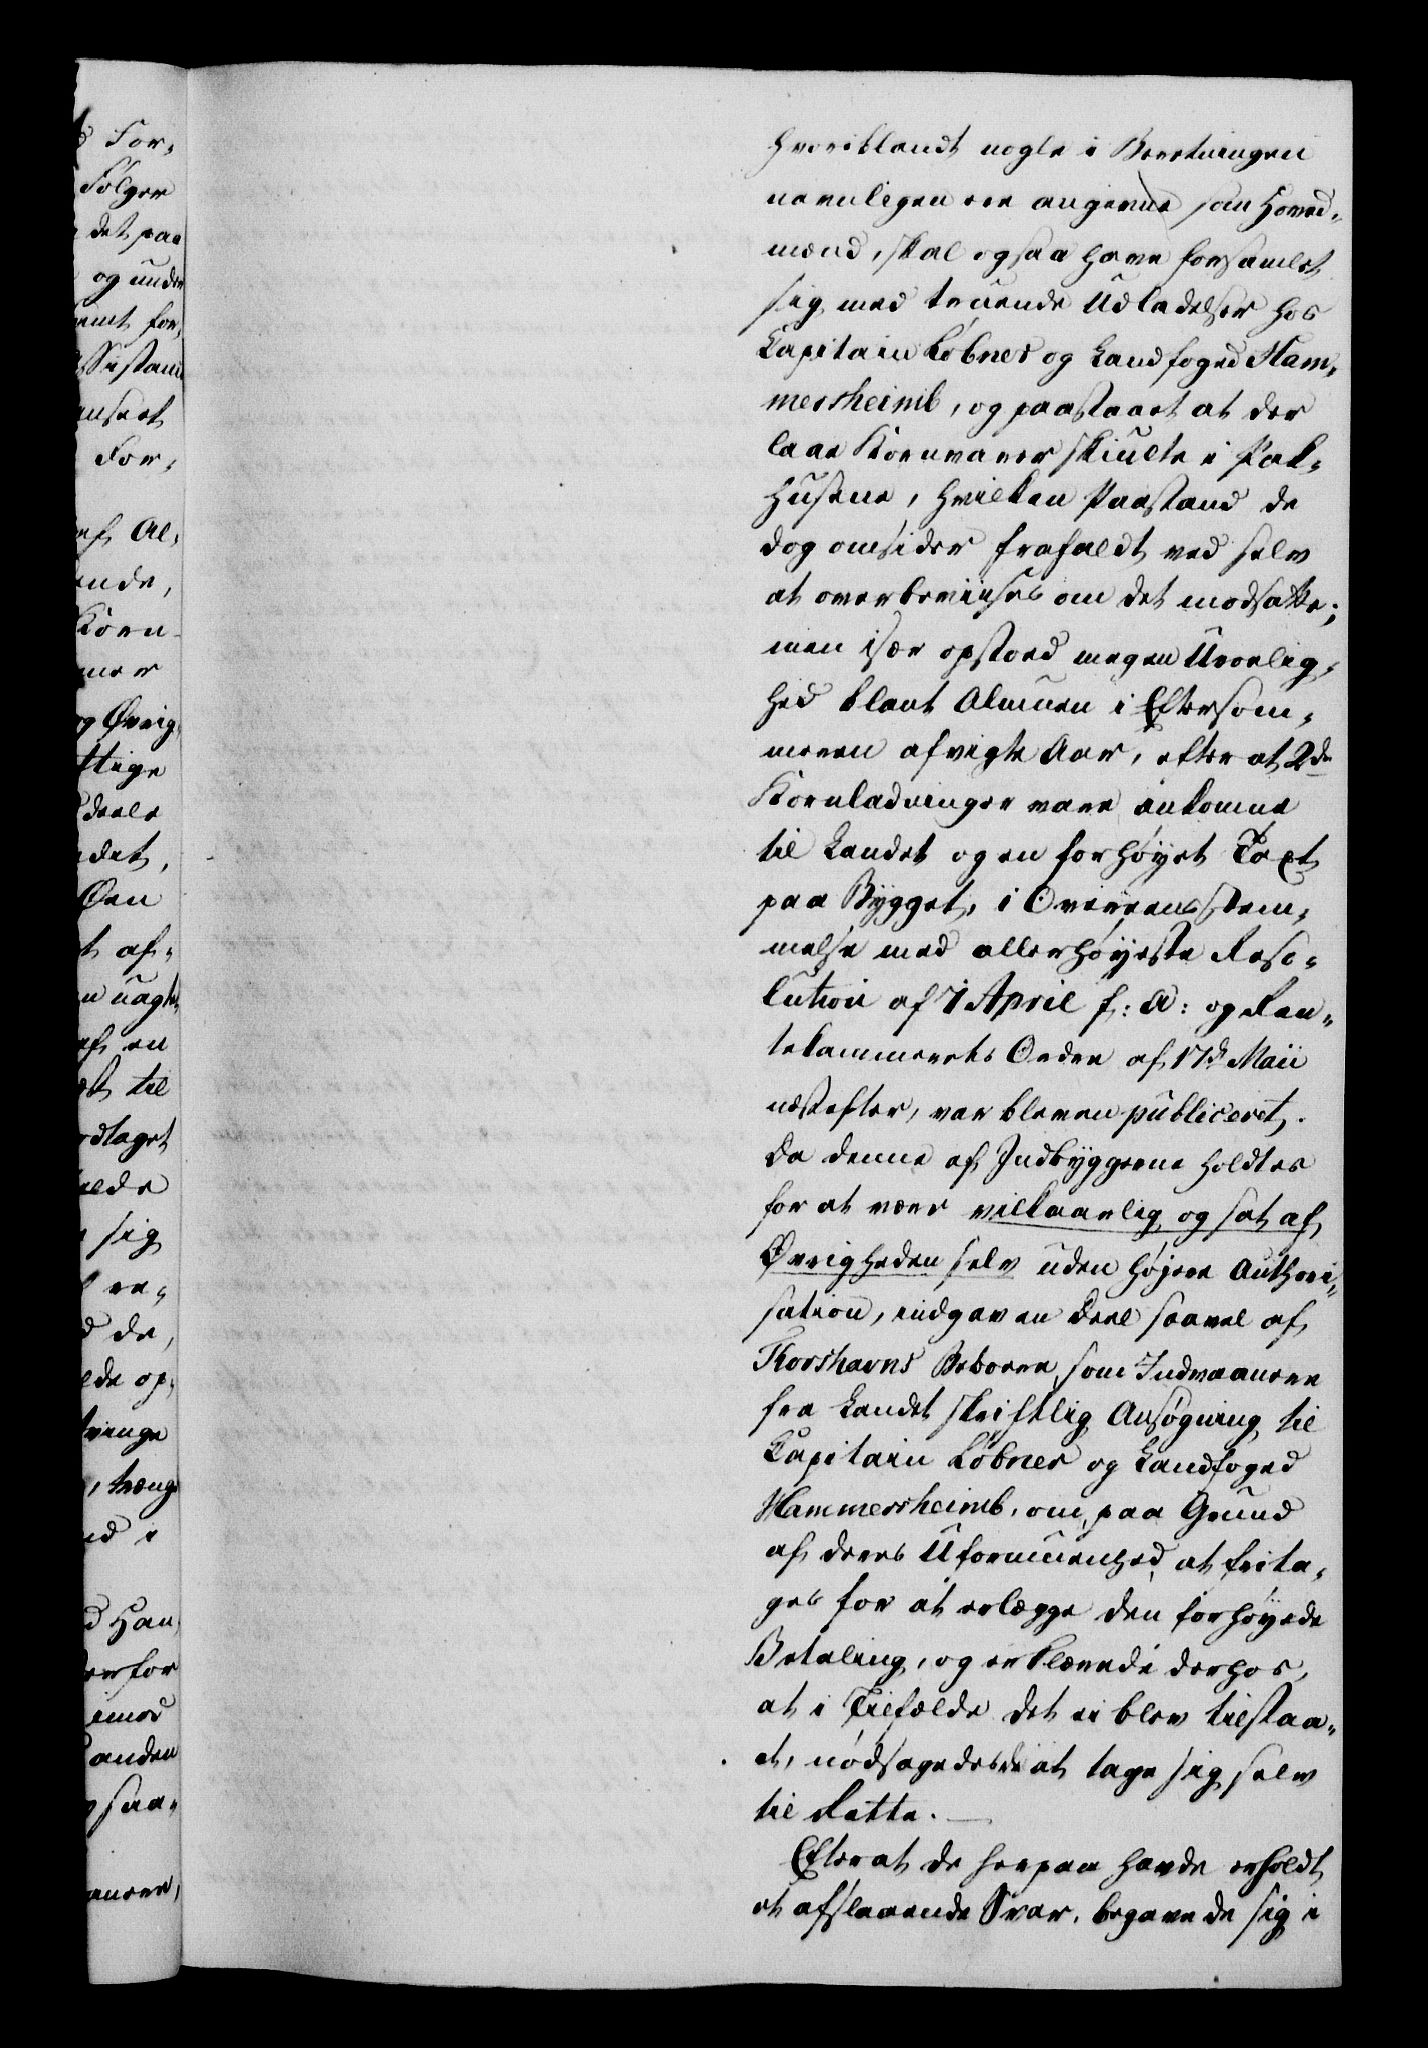 hvoriblandt nogle i Beretningen
navnligen ere angivne som Hoved-
mænd, skal ogsaa have forsamlet
sig med truende Udladelser hos
Capitain Løbner og Landfoged Ham-
mersheimb, og paastaaet at der
laae Kornvarer skiulte i Pak-
husene, hvilken Paastand de
dog omsider frafaldt ved selv
at overbeviises om det modsatte;
men især opstoed megen Uroelig-
hed blant Almuen i Eftersom-
meren afvigte Aar, efter at 2de
Kornladninger vare ankomne
til Landet og en forhøyet Taxt
paa Bygget, i Overeensstem-
melse med allerhøyeste Reso-
lution af 7 April f: A: og Ren-
tekammerets Ordre af 17d Maii
næstefter, var bleven publiceret.
Da denne af Indbyggerne holdtes
for at være vilkaarlig og sat af
Øvrigheden selv uden højere Authori-
sation, indgav en Deel saavel af
Thorshavns Beboere, som Indvaanere
fra Landet skriftlig Ansøgning til
Capitain Løbner og Landfoged
Hammersheimb, om, paa Grund
af deres Uformuenhed at frita-
ges for at erlægge den forhøyede
Betaling, og erklærede derhos,
at i Tilfælde det ei blev tilstaa-
et, nødsagedes de at tage sig selv
til Rette. —
Efterat de herpaa havde erholdt
et afslaaende Svar, begave de sig i
For-
Følger
det paa
og under
for-
For-
af Al-
Korn-
og Øvrig-
Øen
t af-
af en
til
sig
de,
op-
Han
derfor
imod
anden
saa-